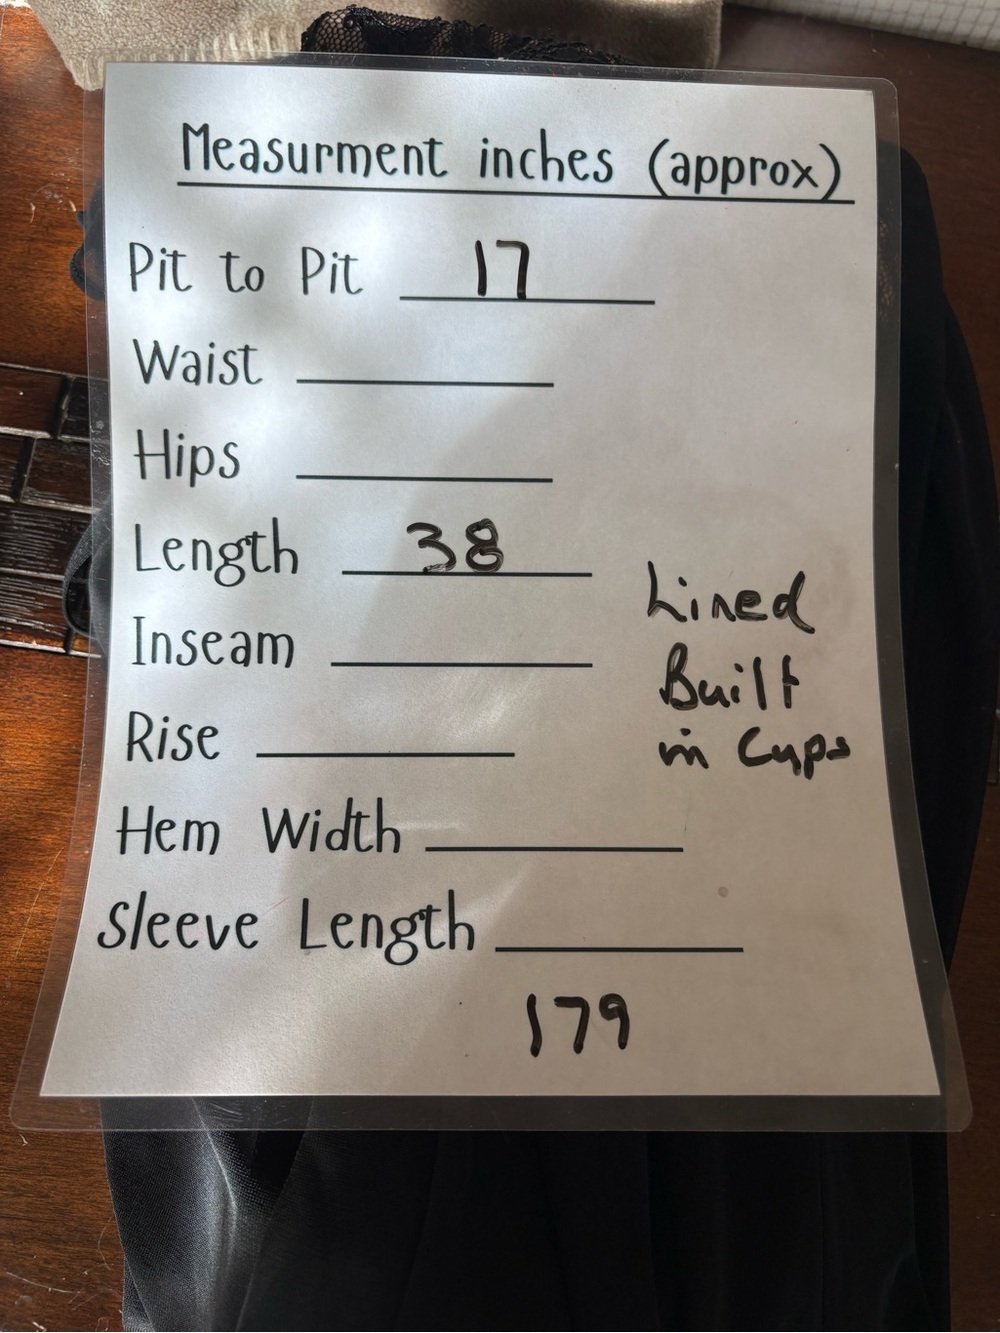 Measurment inches (approx)
Pit to Pit 17
Waist
Hips
Length 38
Inseam
Rise
Hem Width
Sleeve Length
Lined
Built
in Cups
179